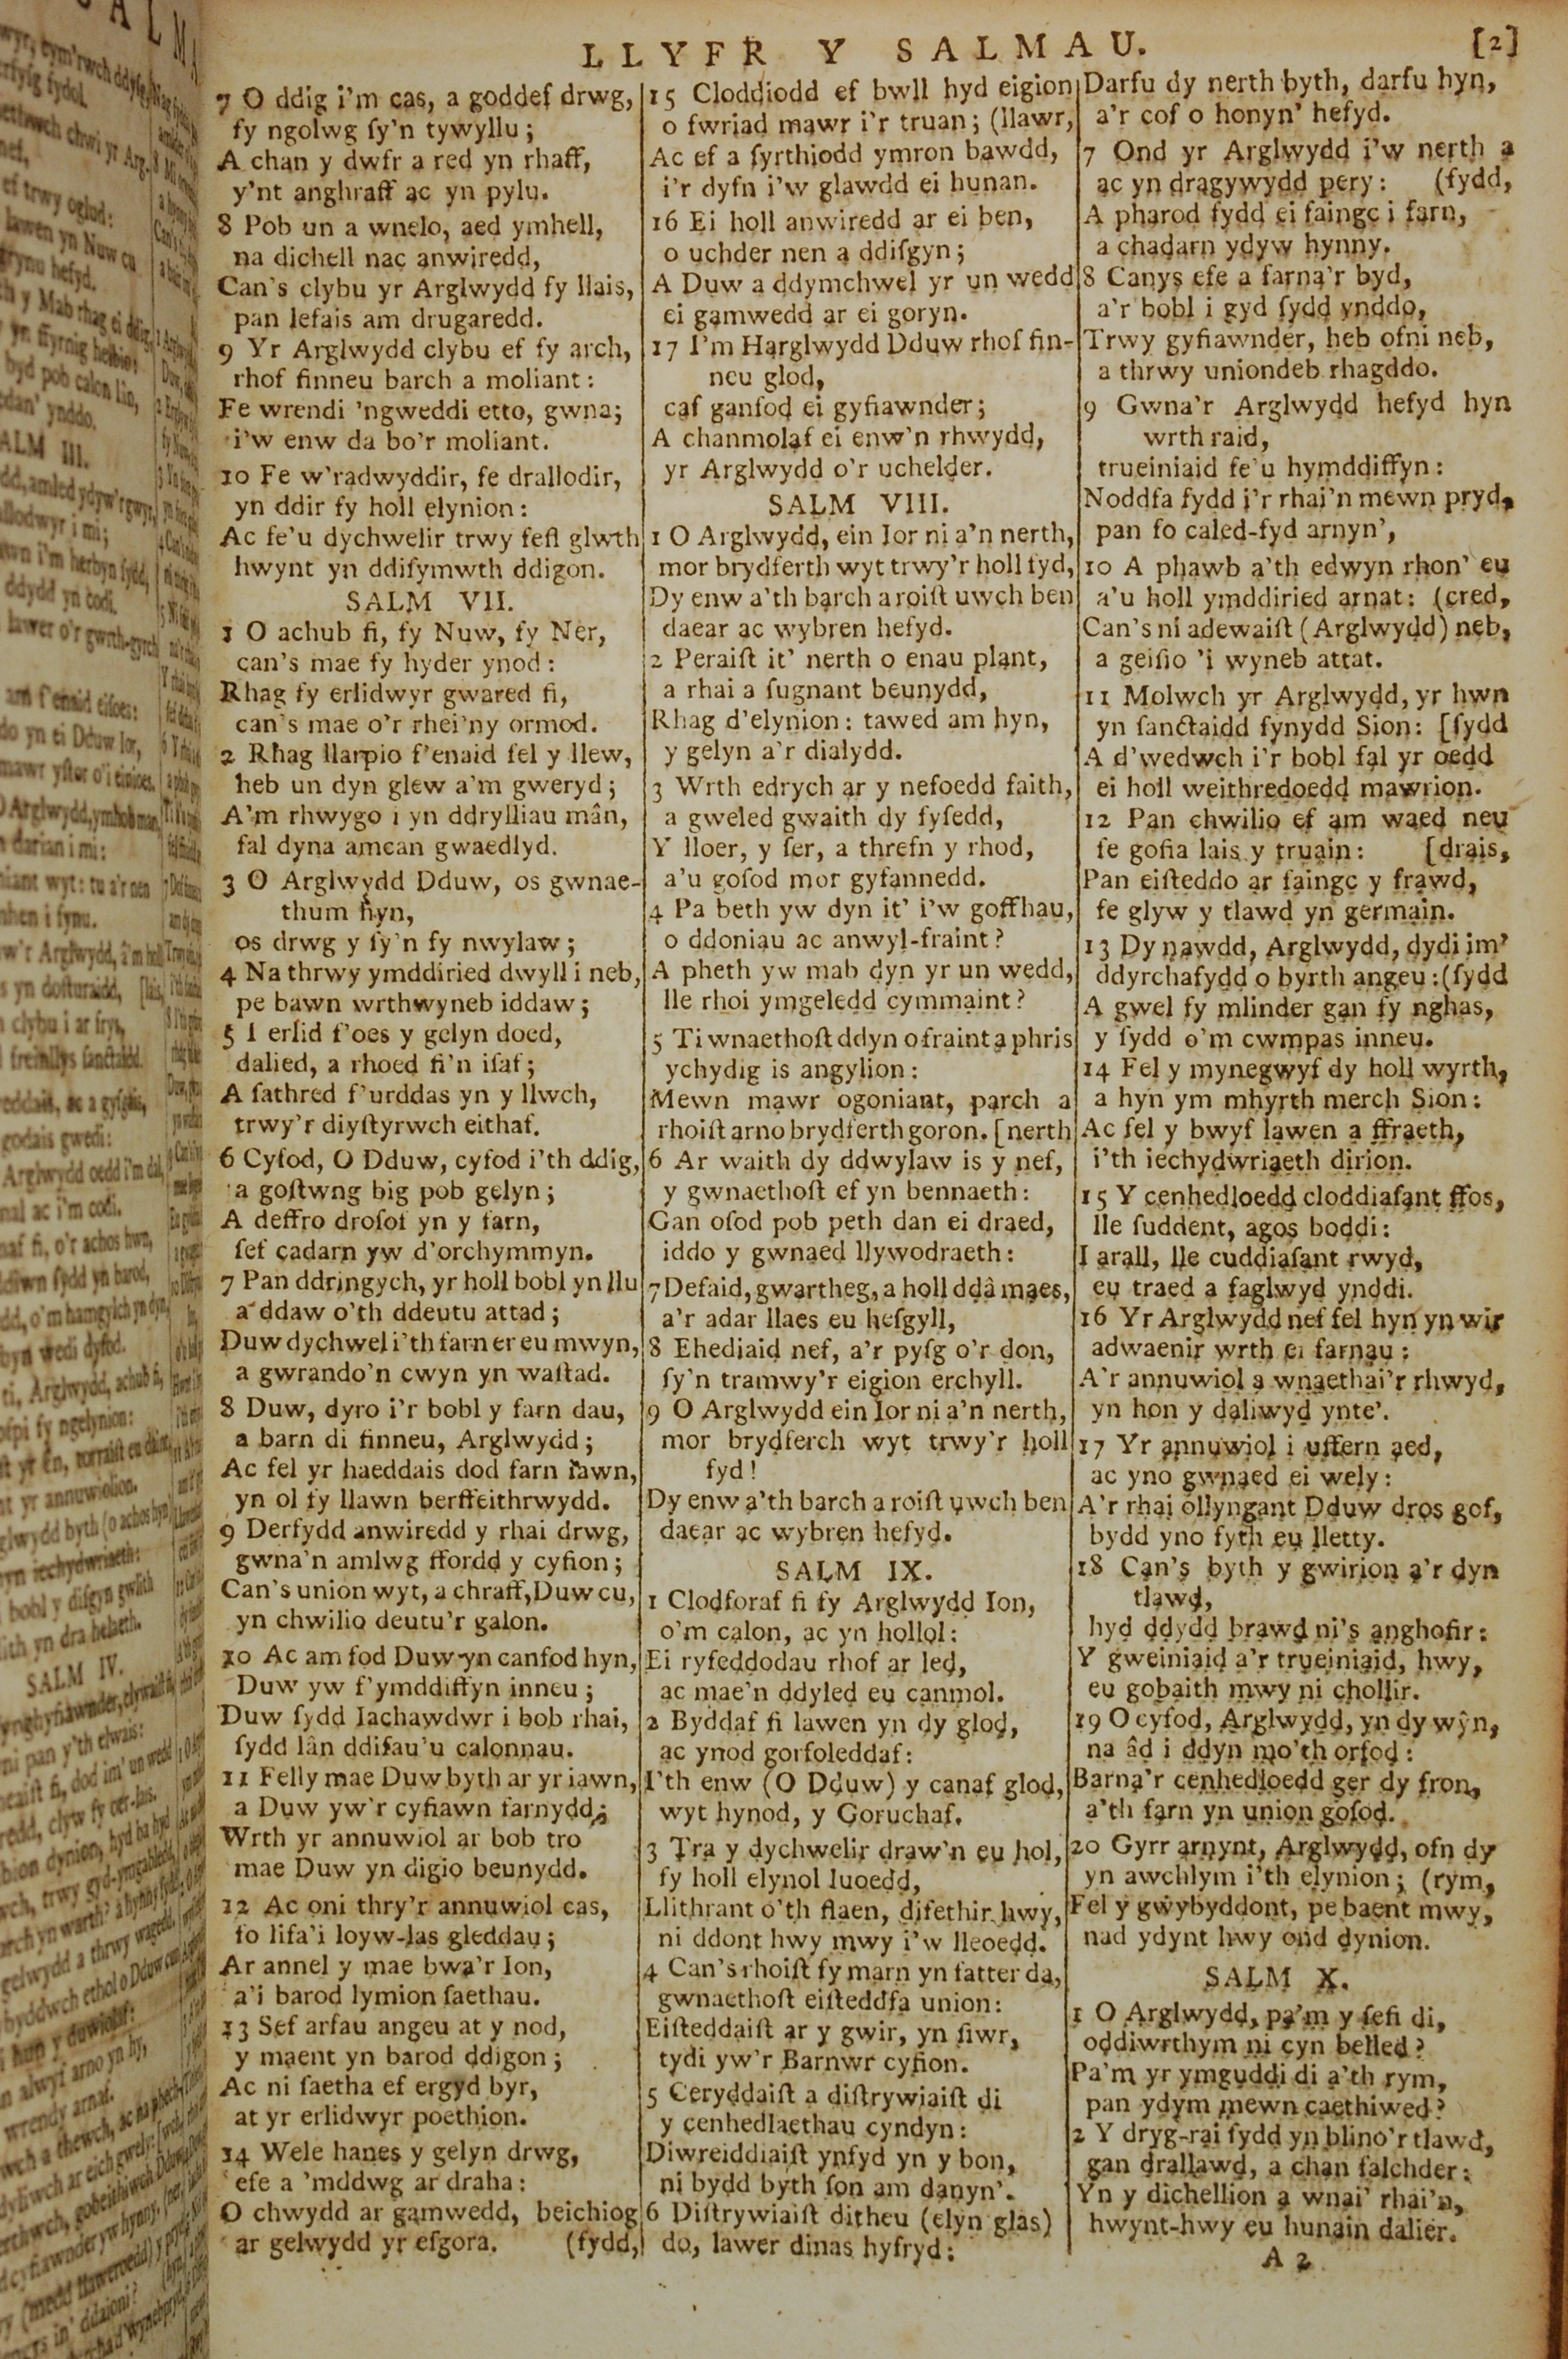 LLYFR Y SALMAU.
[2]
7 O ddig i'm cas, a goddef drwg,
fy ngolwg ſy'n tywyllu;
A chan y dwfr a red yn rhaff,
y'nt anghraff ac yn pylu.
8 Pob un a wnelo, aed ymhell,
na dichell nac anwiredd,
Can's clybu yr Arglwydd fy llais,
pan lefais am drugaredd.
9 Yr Arglwydd clybu ef fy arch,
rhof finneu barch a moliant:
Fe wrendi 'ngweddi etto, gwna;
i'w enw da bo'r moliant.
10 Fe w'radwyddir, fe drallodir,
yn ddir fy holl elynion:
Ac fe'u dychwelir trwy fefl glwth
hwynt yn ddiſymwth ddigon.
SALM VII.
1 O achub fi, fy Nuw, fy Ner,
can's mae fy hyder ynod:
Rhag fy erlidwyr gwared fi,
can's mae o'r rhei'ny ormod.
2 Rhag llarpio f'enaid fel y llew,
heb un dyn glew a'm gweryd;
A'm rhwygo i yn ddrylliau mân,
fal dyna amcan gwaedlyd.
3 O Arglwydd Dduw, os gwnae-
thum hyn,
os drwg y ſy'n fy nwylaw;
4 Na thrwy ymddiried dwyll i neb,
pe bawn wrthwyneb iddaw;
5 I erlid f'oes y gelyn doed,
dalied, a rhoed fi'n iſaf;
A ſathred f'urddas yn y llwch,
trwy'r diyſtyrwch eithaf.
6 Cyfod, O Dduw, cyfod i'th ddig,
a goſtwng big pob gelyn;
A deffro droſof yn y farn,
ſef cadarn yw d'orchymmyn.
7 Pan ddringych, yr holl bobl yn llu
a ddaw o'th ddeutu attad;
Duw dychwel i'th farn er eu mwyn,
a gwrando'n cwyn yn waſtad.
8 Duw, dyro i'r bobl y farn dau,
a barn di finneu, Arglwydd;
Ac fel yr haeddais dod farn iawn,
yn ol fy llawn berffeithrwydd.
9 Derfydd anwiredd y rhai drwg,
gwna'n amlwg ffordd y cyfion;
Can's union wyt, a chraff, Duw cu,
yn chwilio deutu'r galon.
10 Ac am fod Duw yn canfod hyn,
Duw yw f'ymddiffyn inneu;
Duw ſydd Iachawdwr i bob rhai,
ſydd lân ddifau'u calonnau.
11 Felly mae Duw byth ar yr iawn,
a Duw yw'r cyfiawn farnydd;
Wrth yr annuwiol ar bob tro
mae Duw yn digio beunydd.
12 Ac oni thry'r annuwiol cas,
fo lifa'i loyw-las gleddau;
Ar annel y mae bwa'r Ion,
a'i barod lymion ſaethau.
13 Sef arfau angeu at y nod,
y maent yn barod ddigon;
Ac ni ſaetha ef ergyd byr,
at yr erlidwyr poethion.
14 Wele hanes y gelyn drwg,
efe a 'mddwg ar draha:
O chwydd ar gamwedd, beichiog
ar gelwydd yr eſgora. (fydd,
15 Cloddiodd ef bwll hyd eigion
o fwriad mawr i'r truan; (llawr,
Ac ef a ſyrthiodd ymron bawdd,
i'r dyfn i'w glawdd ei hunan.
16 Ei holl anwiredd ar ei ben,
o uchder nen a ddiſgyn;
A Duw a ddymchwel yr un wedd
ei gamwedd ar ei goryn.
17 I'm Harglwydd Dduw rhof fin-
neu glod,
caf ganfod ei gyfiawnder;
A chanmolaf ei enw'n rhwydd,
yr Arglwydd o'r uchelder.
SALM VIII.
1 O Arglwydd, ein Ior ni a'n nerth,
mor brydferth wyt trwy'r holl fyd,
Dy enw a'th barch a roiſt uwch ben
daear ac wybren hefyd.
2 Peraiſt it' nerth o enau plant,
a rhai a ſugnant beunydd,
Rhag d'elynion: tawed am hyn,
y gelyn a'r dialydd.
3 Wrth edrych ar y nefoedd faith,
a gweled gwaith dy fyſedd,
Y lloer, y ſer, a threfn y rhod,
a'u goſod mor gyfannedd.
4 Pa beth yw dyn it' i'w goffhau,
o ddoniau ac anwyl-fraint?
A pheth yw mab dyn yr un wedd,
lle rhoi ymgeledd cymmaint?
5 Ti wnaethoſt ddyn o fraint a phris
ychydig is angylion:
Mewn mawr ogoniant, parch a
rhoiſt arno brydferth goron. [nerth
6 Ar waith dy ddwylaw is y nef,
y gwnaethoſt ef yn bennaeth:
Gan oſod pob peth dan ei draed,
iddo y gwnaed llywodraeth:
7 Defaid, gwartheg, a holl ddâ maes,
a'r adar llaes eu heſgyll,
8 Ehediaid nef, a'r pyſg o'r don,
ſy'n tramwy'r eigion erchyll.
9 O Arglwydd ein Ior ni a'n nerth,
mor brydferch wyt trwy'r holl
fyd!
Dy enw a'th barch a roiſt uwch ben
daear ac wybren hefyd.
SALM IX.
1 Clodforaf fi fy Arglwydd Ion,
o'm calon, ac yn hollol:
Ei ryfeddodau rhof ar led,
ac mae'n ddyled eu canmol.
2 Byddaf fi lawen yn dy glod,
ac ynod gorfoleddaf:
I'th enw (O Dduw) y canaf glod,
wyt hynod, y Goruchaf.
3 Tra y dychwelir draw'n eu hol,
fy holl elynol luoedd,
Llithrant o'th flaen, difethir hwy,
ni ddont hwy mwy i'w lleoedd.
4 Can's rhoiſt fy marn yn fatter da,
gwnaethoſt eiſteddfa union:
Eiſteddaiſt ar y gwir, yn ſiwr,
tydi yw'r Barnwr cyfion.
5 Ceryddaiſt a diſtrywiaiſt di
y cenhedlaethau cyndyn:
Diwreiddiaiſt ynfyd yn y bon,
ni bydd byth ſon am danyn'.
6 Diſtrywiaiſt ditheu (elyn glas)
do, lawer dinas hyfryd:
Darfu dy nerth byth, darfu hyn,
a'r cof o honyn' hefyd.
7 Ond yr Arglwydd i'w nerth a
ac yn dragywydd pery: (fydd,
A pharod fydd ei faingc i farn,
a chadarn ydyw hynny.
8 Canys efe a farna'r byd,
a'r bobl i gyd ſydd ynddo,
Trwy gyfiawnder, heb ofni neb,
a thrwy uniondeb rhagddo.
9 Gwna'r Arglwydd hefyd hyn
wrth raid,
trueiniaid fe'u hymddiffyn:
Noddfa fydd i'r rhai'n mewn pryd,
pan fo caled-fyd arnyn',
10 A phawb a'th edwyn rhon' eu
a'u holl ymddiried arnat: (cred,
Can's ni adewaiſt (Arglwydd) neb,
a geiſio 'i wyneb attat.
11 Molwch yr Arglwydd, yr hwn
yn ſanctaidd fynydd Sion: [ſydd
A d'wedwch i'r bobl fal yr oedd
ei holl weithredoedd mawrion.
12 Pan chwilio ef am waed neu
fe gofia lais y truain: [drais,
Pan eiſteddo ar faingc y frawd,
fe glyw y tlawd yn germain.
13 Dy nawdd, Arglwydd, dydi im'
ddyrchafydd o byrth angeu: (fydd
A gwel fy mlinder gan fy nghas,
y ſydd o'm cwmpas inneu.
14 Fel y mynegwyf dy holl wyrth,
a hyn ym mhyrth merch Sion:
Ac fel y bwyf lawen a ffraeth,
i'th iechydwriaeth dirion.
15 Y cenhedloedd cloddiaſant ffos,
lle ſuddent, agos boddi:
I arall, lle cuddiaſant rwyd,
eu traed a faglwyd ynddi.
16 Yr Arglwydd nef fel hyn yn wir
adwaenir wrth ei farnau:
A'r annuwiol a wnaethai'r rhwyd,
yn hon y daliwyd ynte'.
17 Yr annuwiol i uffern aed,
ac yno gwnaed ei wely:
A'r rhai ollyngant Dduw dros gof,
bydd yno fyth eu lletty.
18 Can's byth y gwirion a'r dyn
tlawd,
hyd ddydd brawd ni's anghofir:
Y gweiniaid a'r trueiniaid, hwy,
eu gobaith mwy ni chollir.
19 O cyfod, Arglwydd, yn dy wŷn,
na âd i ddyn mo'th orfod:
Barna'r cenhedloedd ger dy fron,
a'th farn yn union goſod.
20 Gyrr arnynt, Arglwydd, ofn dy
yn awchlym i'th elynion; (rym,
Fel y gwybyddont, pe baent mwy,
nad ydynt hwy ond dynion.
SALM X.
1 O Arglwydd, pa'm y ſefi di,
oddiwrthym ni cyn belled?
Pa'm yr ymguddi di a'th rym,
pan ydym mewn caethiwed?
2 Y dryg-rai ſydd yn blino'r tlawd,
gan drallawd, a chan falchder:
Yn y dichellion a wnai' rhai'n,
hwynt-hwy eu hunain dalier.
A 2